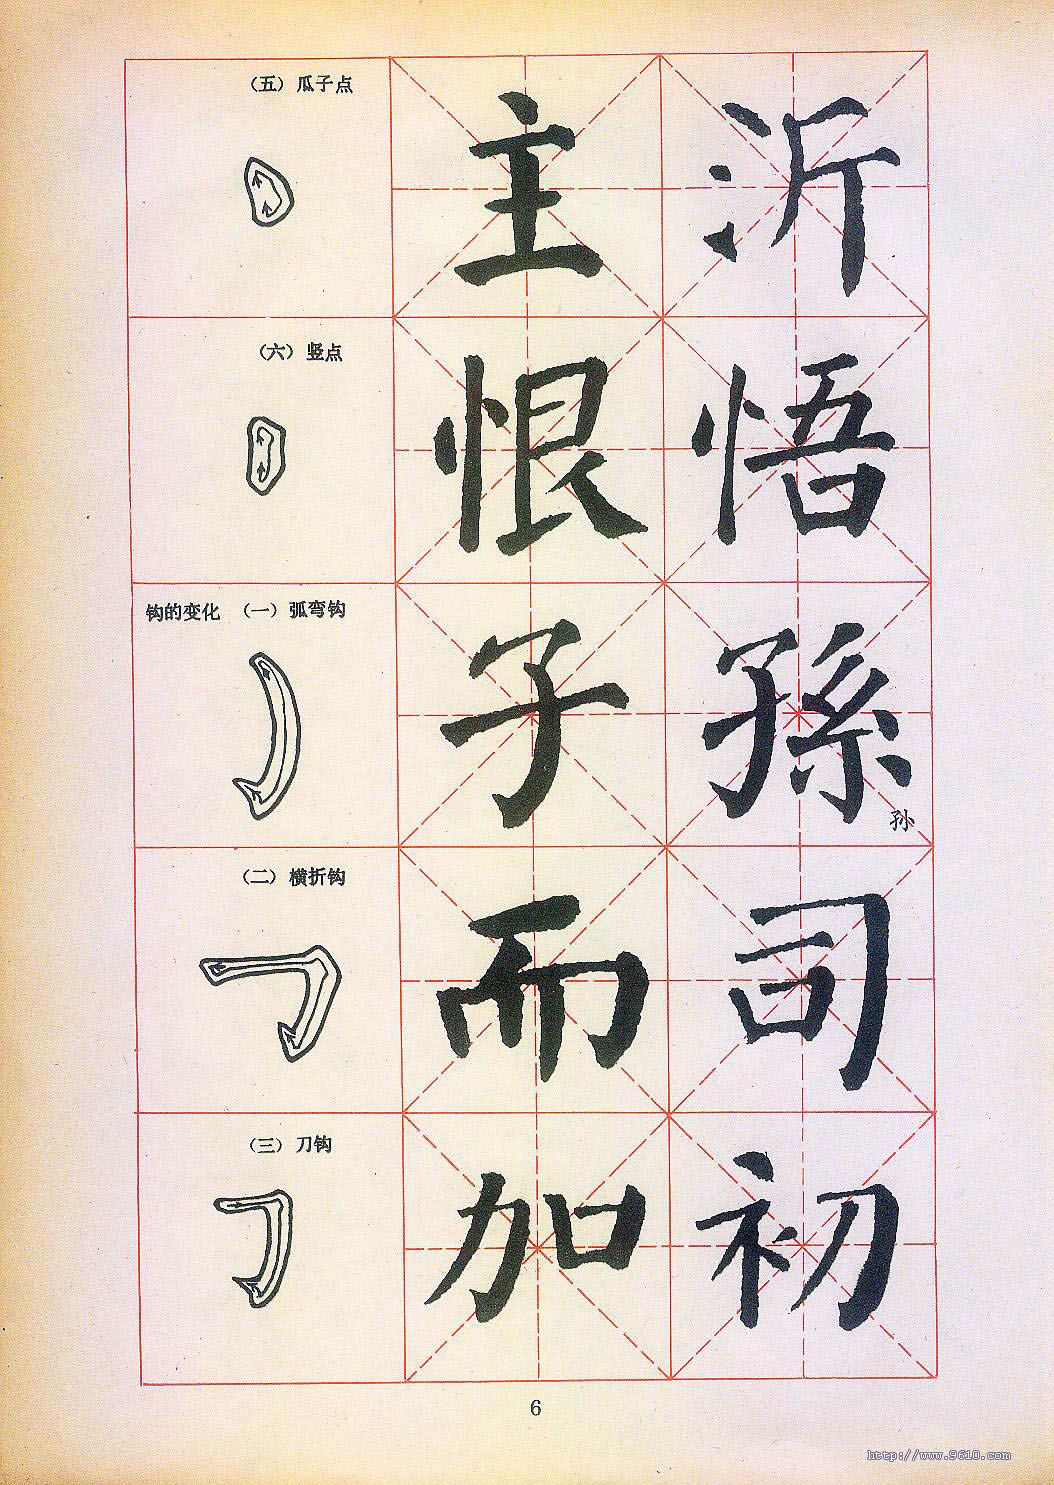 （五）瓜子点
主 沂
（六）竖点
恨 悟
钩的变化 （一）弧弯钩
子 孫
孙
（二）横折钩
而 司
（三）刀钩
加 初
6
http://www.9610.com